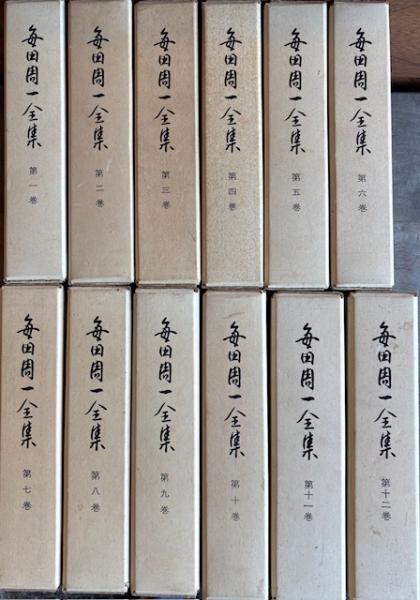 毎田周一全集
第一巻
毎田周一全集
第二巻
毎田周一全集
第三巻
毎田周一全集
第四巻
毎田周一全集
第五巻
毎田周一全集
第六巻
毎田周一全集
第七巻
毎田周一全集
第八巻
毎田周一全集
第九巻
毎田周一全集
第十巻
毎田周一全集
第十一巻
毎田周一全集
第十二巻